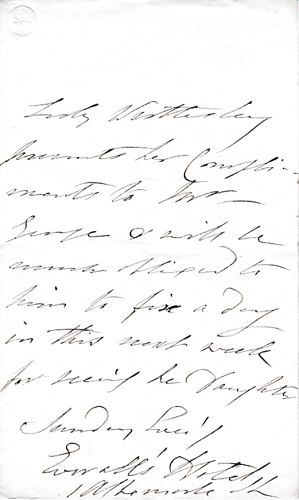 Lady Wrottesley
presents her Compli-
ments to Mr
George & will be
much obliged to
him to fix a day
in this next week
for seeing her Daughter
Sunday Eve'g
Hotel
Albemarle